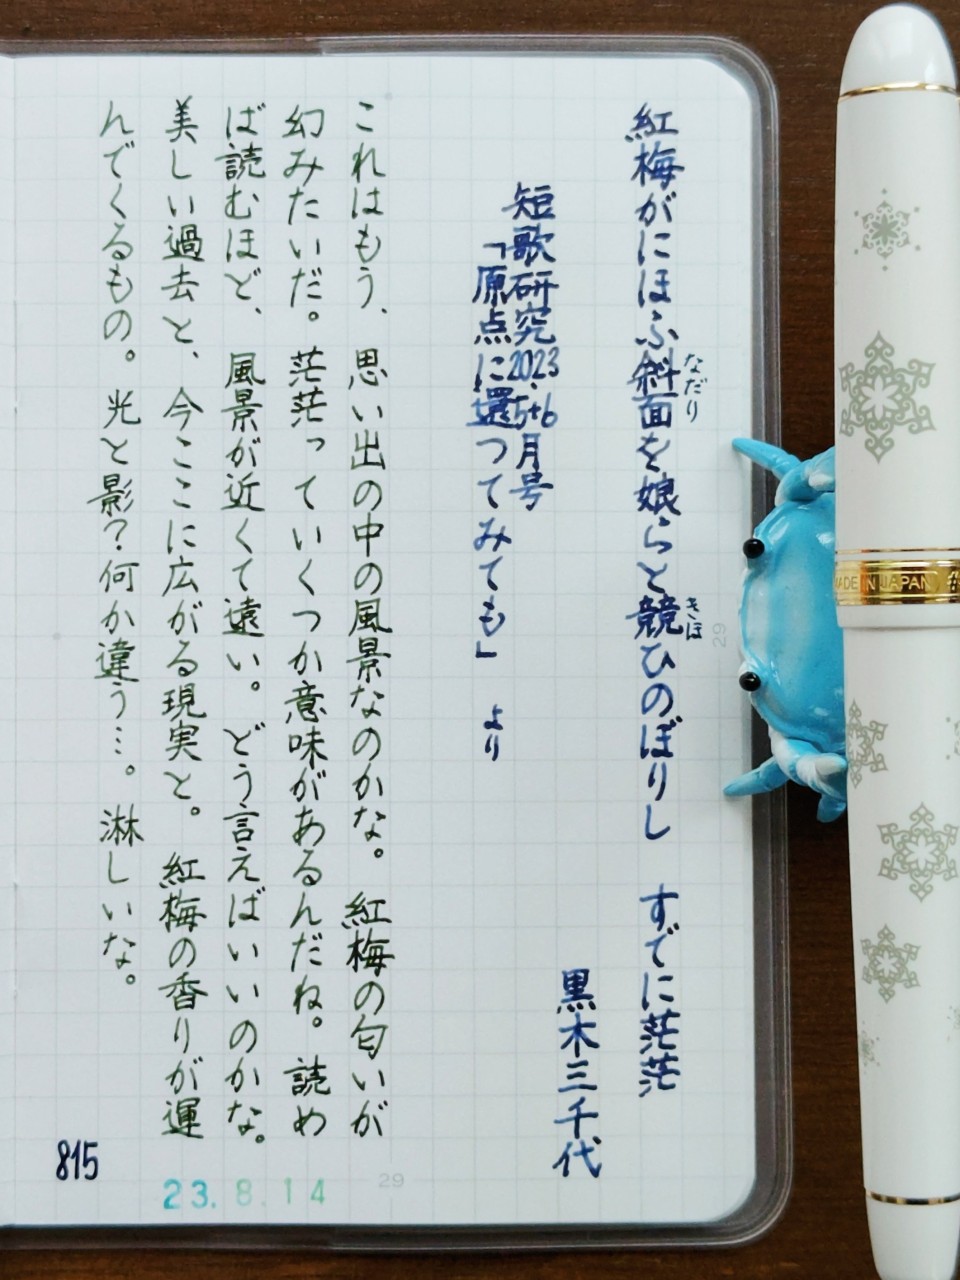 紅梅がにほふ斜面を娘らと競ひのぼりし　すでに茫茫
なだり
きほ
黒木三千代
短歌研究2023.5+6月号
「原点に還つてみても」　より
これはもう、思い出の中の風景なのかな。紅梅の匂いが
幻みたいだ。茫茫っていくつか意味があるんだね。読め
ば読むほど、風景が近くて遠い。どう言えばいいのかな。
美しい過去と、今ここに広がる現実と。紅梅の香りが運
んでくるもの。光と影？何か違う…。淋しいな。
815
23.8.14
29
29
MADE IN JAPAN